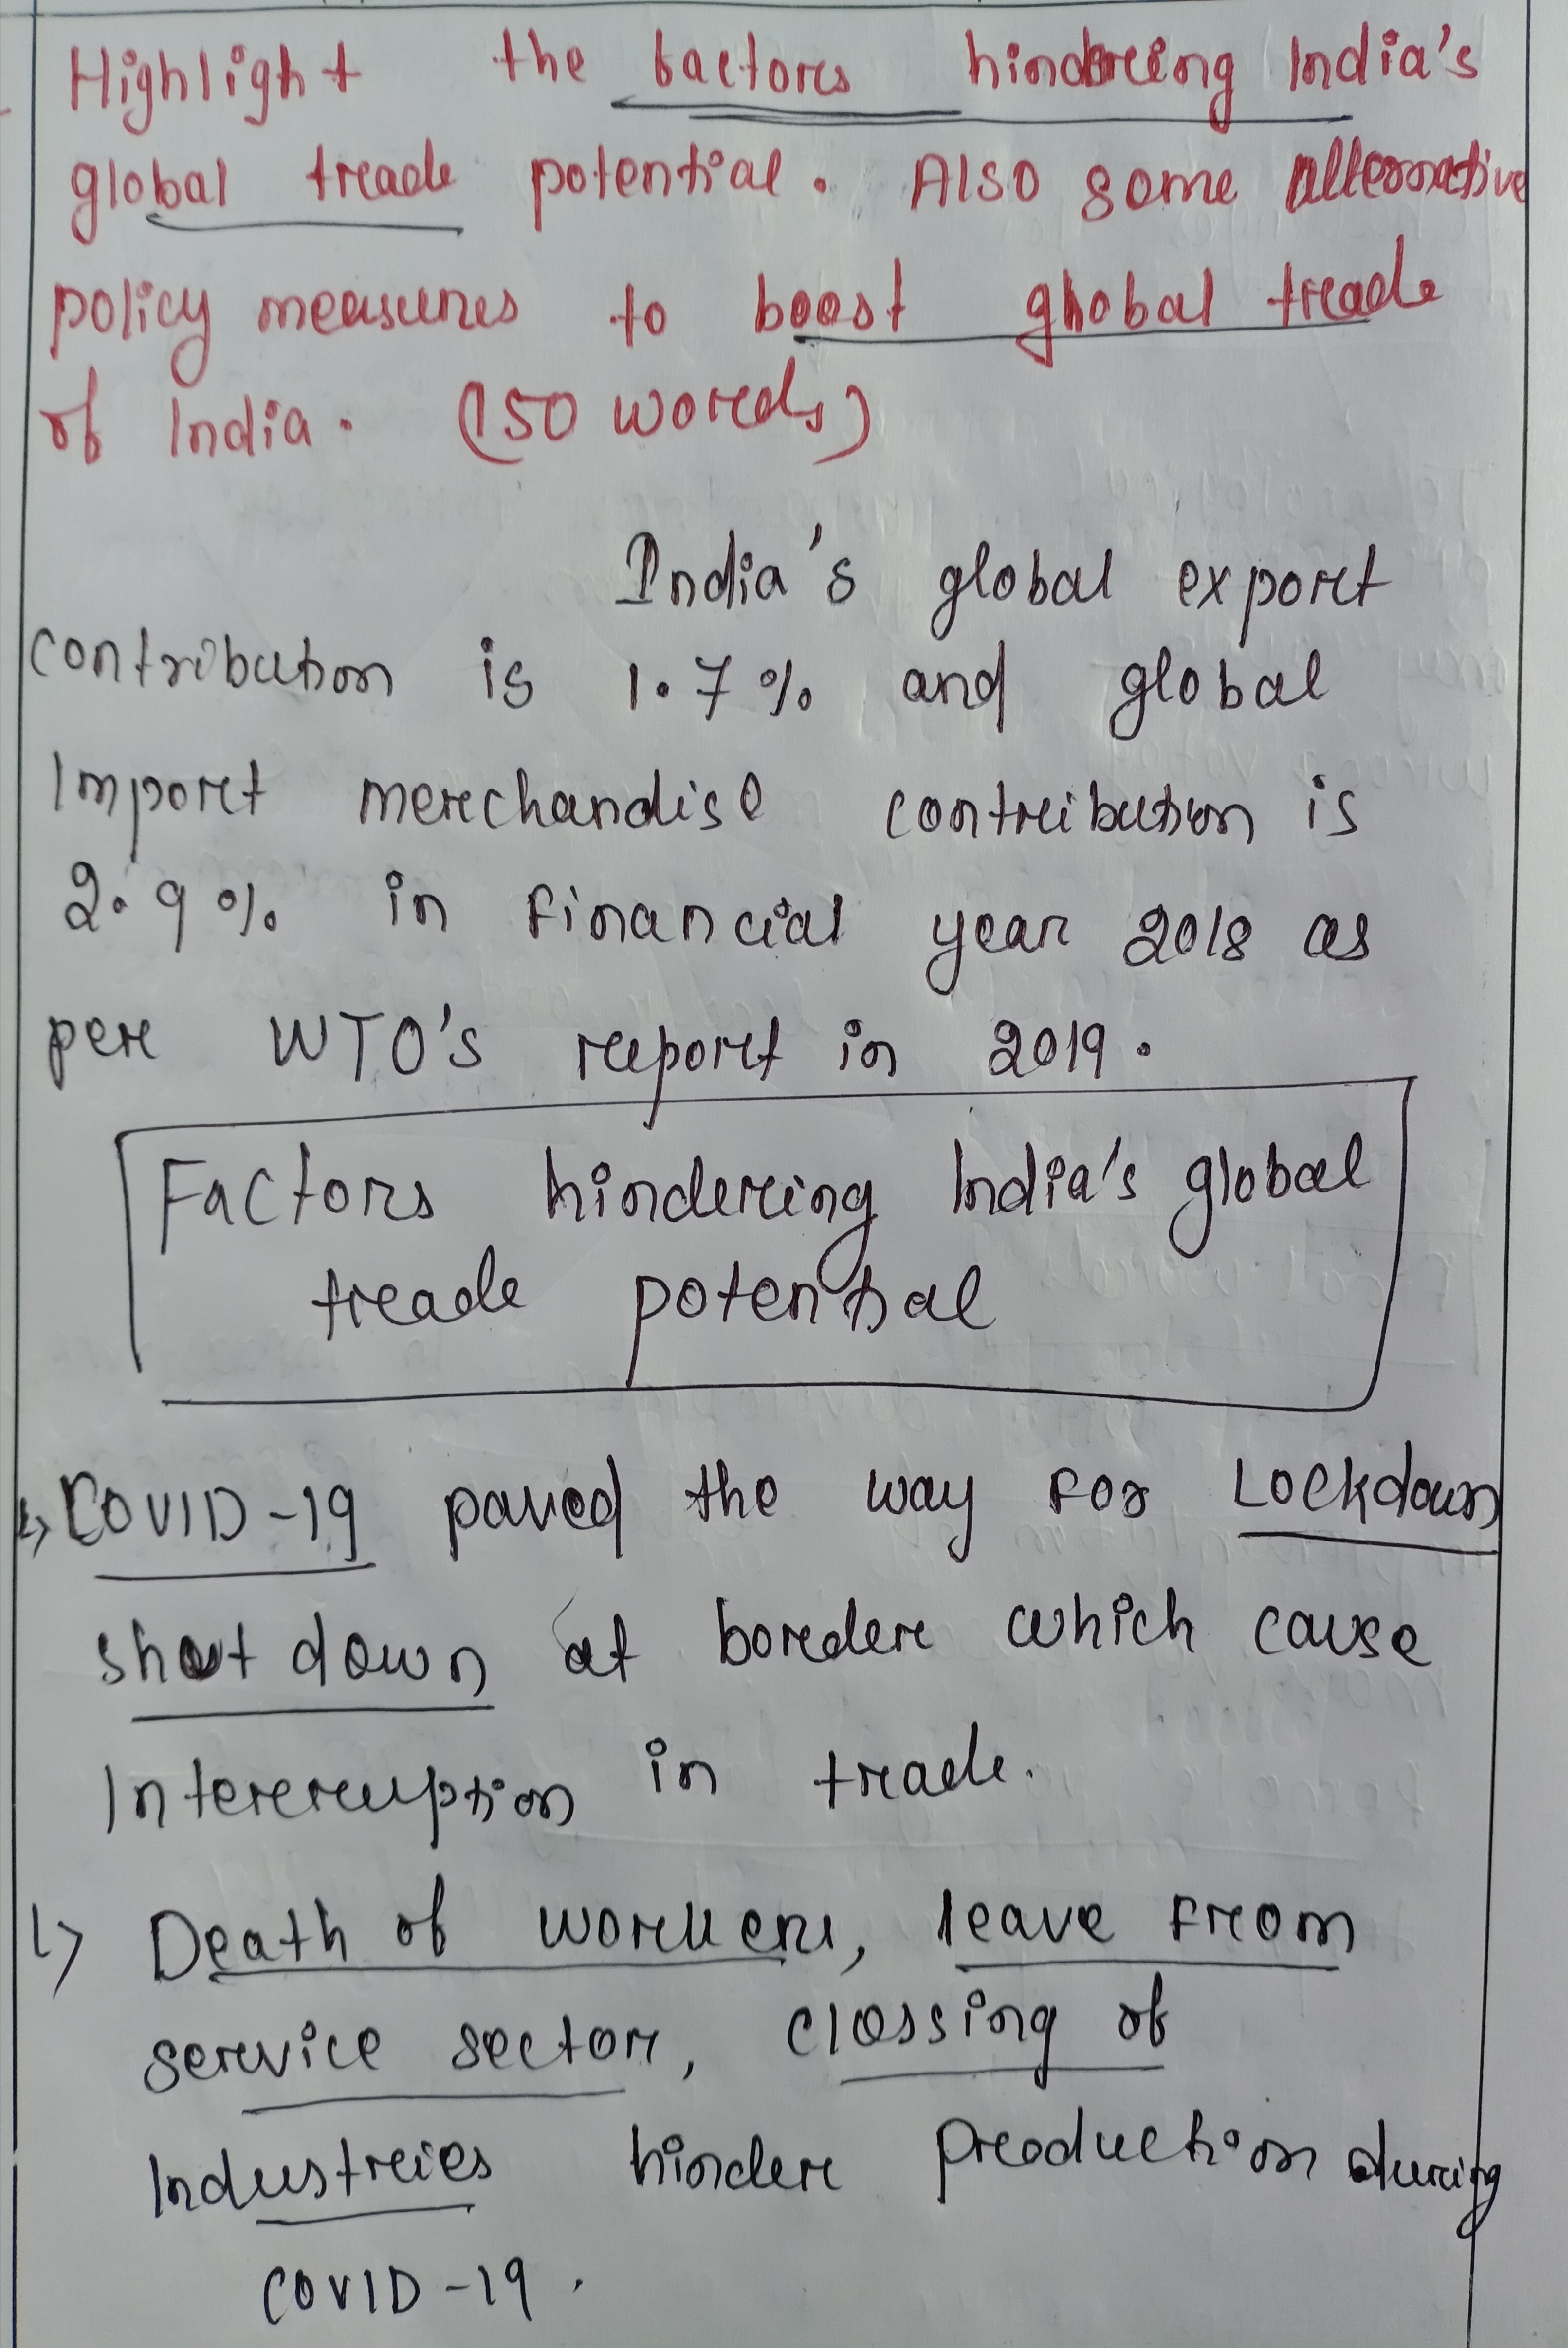 Highlight the factors hindering India's
global trade potential. Also some alternative
policy measures to boost global trade
of India. (150 words)
India's global export
contribution is 1.7% and global
Import merchandise contribution is
2.9% in financial year 2018 as
per WTO's report in 2019.
Factors hindering India's global
trade potential
↳ COVID-19 paved the way for Lockdown
shut down at border which cause
Interruption in trade.
↳ Death of workers, leave from
service sector, clossing of
Industries hinder production during
COVID-19.